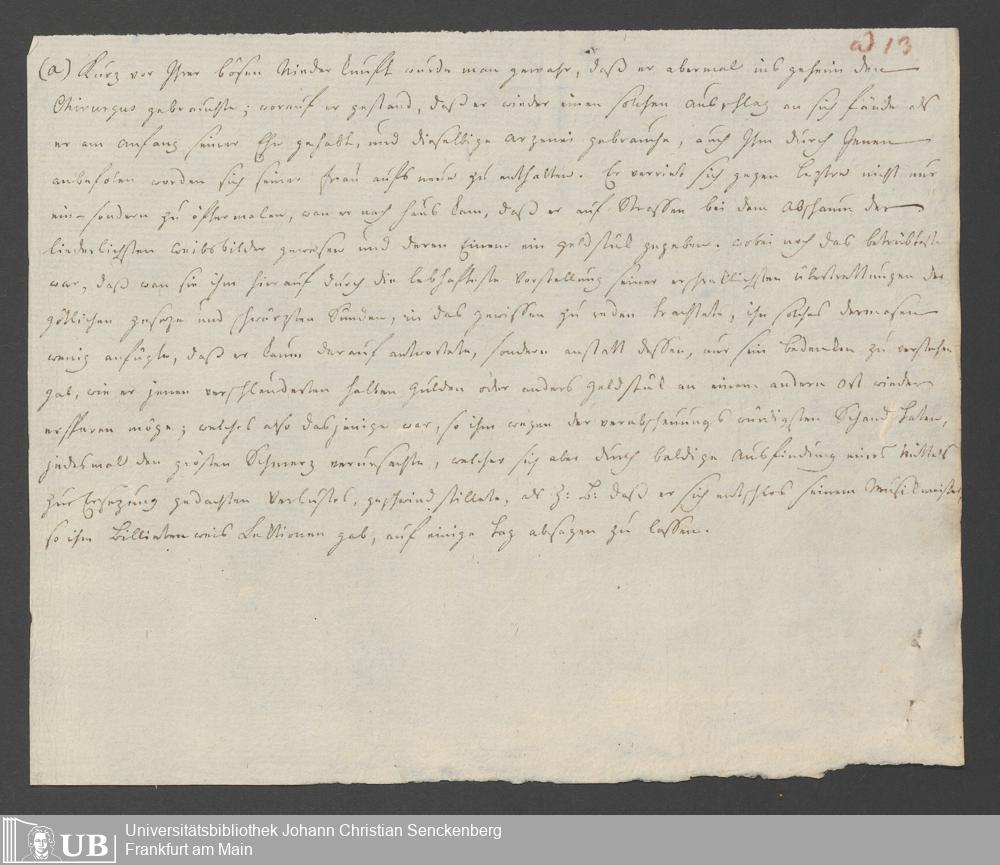 ad 13
(a) Kurz vor Ihrer bösen Niederkunfft wurde man gewahr, daß er abermal ins geheim den
Chirurgus gebrauchte; worauf er gestand, daß er wieder einen solchen Ausschlag an sich fände als
er am Anfang seiner Ehe gehabt, und dieselbige Arzenei gebrauche, auch Ihm durch Jenen
anbefolen worden sich seiner Frau aufs neue zu enthalten. Er verriet sich gegen leztre nicht nur
ein- sondern zu öfftermalen, wan er nach Haus kam, daß er auf Strassen bei dem Abschaum der
liederlichsten Weibsbilder gewesen und deren Einem ein Geldstük gegeben. wobei noch das betrübteste
war, daß wan sie ihm hierauf durch die lebhaffteste Vorstellung seiner erschreklichsten Übertrettungen der
götlichen Geseze und schwärzsten Sünden, in das Gewissen zu reden trachtete, ihn solches dermasen
wenig anfügte, daß er kaum darauf antwortete, sondern anstatt dessen, nur sein Bedenken zu verstehen
gab, wie er jenen verschleuderten halben Gulden oder anders Geldstük an einem andern Ort wieder
ersparen möge; welches also dasjenige war, so ihm wegen der verabscheuungs würdigsten Schand-Taten,
jedesmal den grösten Schmerz verursachte, welcher sich aber durch baldige Ausfindung eines Mittels
zur Ersezung gedachten Verlustes, geschwind stillete, als z: B: daß er sich entschlos seinem Musikmeister,
so ihm Billietenweis Lektionen gab, auf einige Tag absagen zu lassen.
UB Universitätsbibliothek Johann Christian Senckenberg
Frankfurt am Main